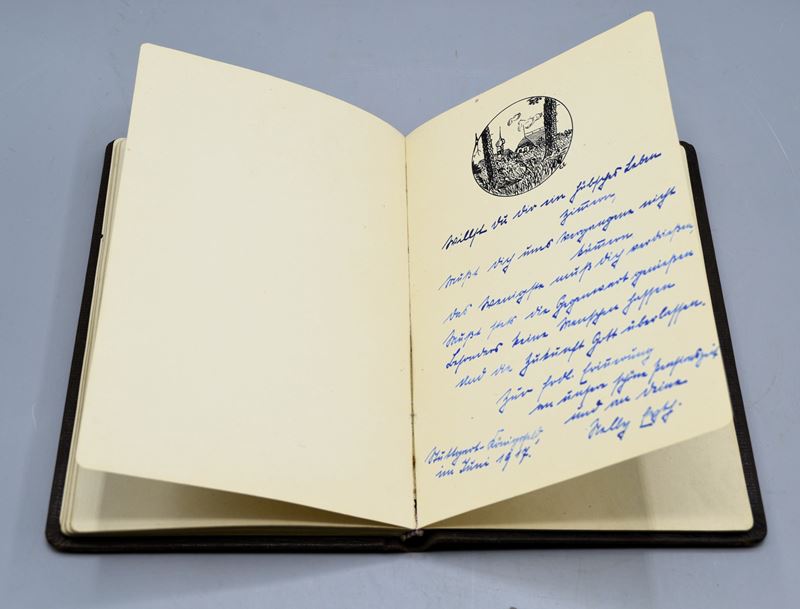 Willst du dir ein hübsches Leben
zimmern,
Mußt dich ums Vergangene nicht
kümmern
Das Wenigste muß dich verdrießen,
Mußt stets die Gegenwart genießen
Besonders keine Menschen hassen
Und die Zukunft Gott überlassen.
Zur frdl. Erinnerung
an unsere schöne Pensionszeit
und an deine
Nelly
Stuttgart-Königsfeld,
im Juni 1917.